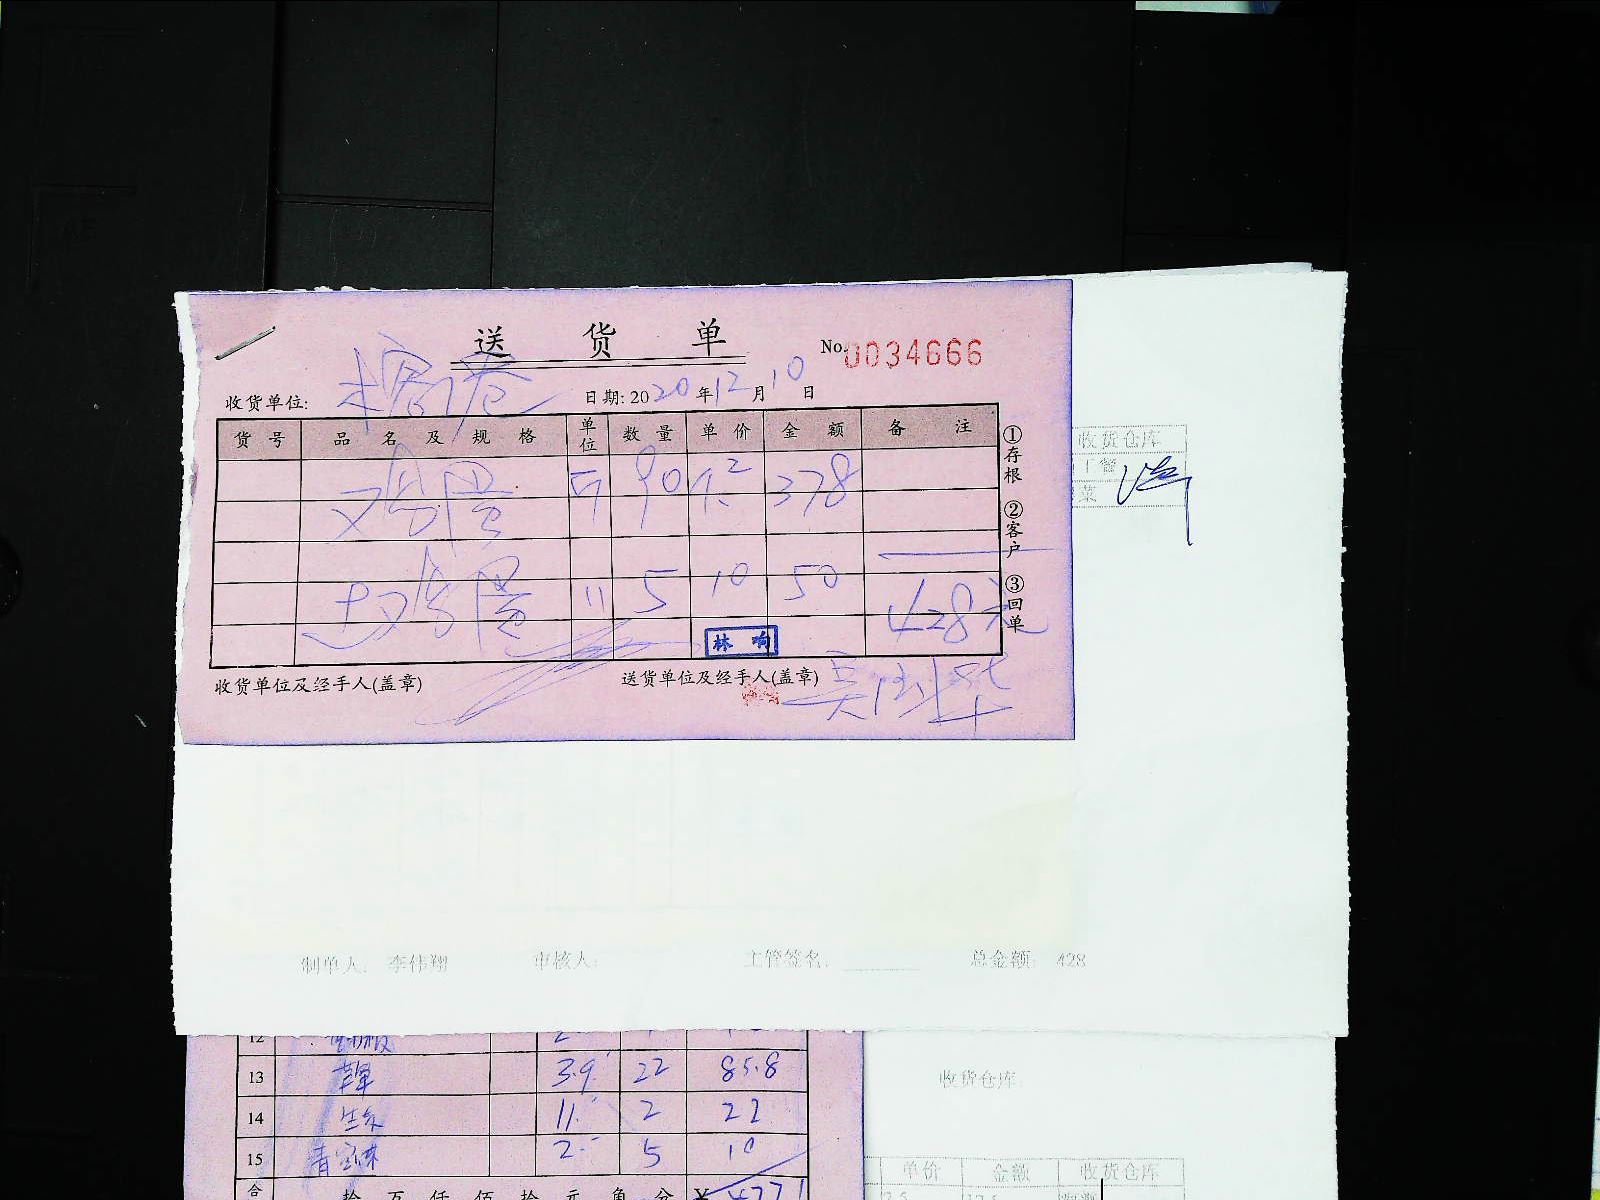 送货单
No. 0034666
收货单位:
日期: 2020年12月10日
货号 品名及规格 单位 数量 单价 金额 备注
鸡蛋 斤 90 4.2 378
土鸡蛋 11 5 10 50
428元
林响
收货单位及经手人(盖章) 送货单位及经手人(盖章)
①存根 ②客户 ③回单
收货仓库
菜
制单人: 李伟翔 审核人: 主管签名: 总金额: 428
12
13 3.9 22 85.8
14 11. 2 22
15 2. 5 10
合 拾万仟佰拾元角分 ¥
收货仓库
单价 金额 收货仓库